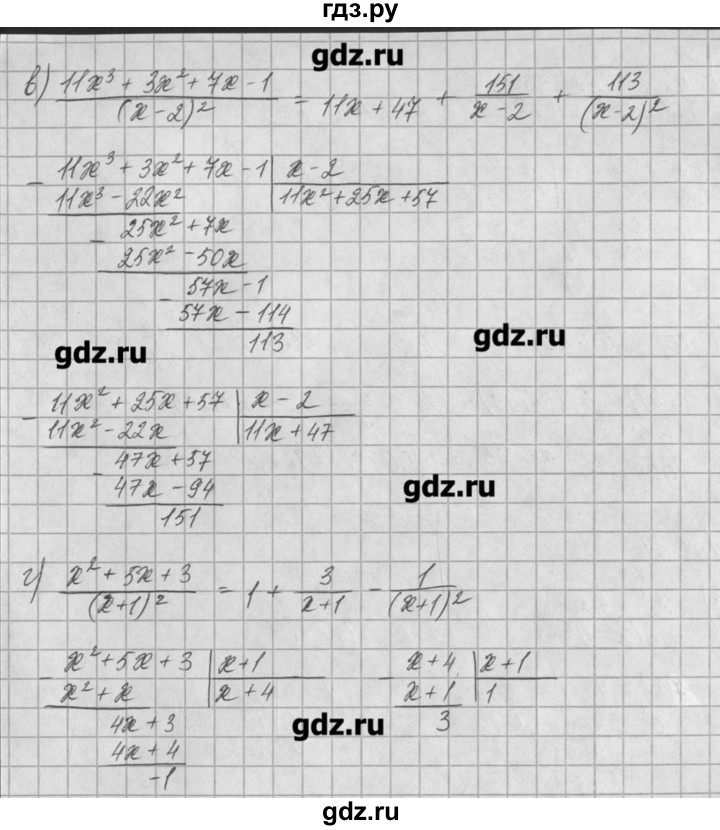 гдз.ру
gdz.ru
в) (11x³ + 3x² + 7x - 1)/(x - 2)² = 11x + 47 + 151/(x - 2) + 113/(x-2)²
- 11x³ + 3x² + 7x - 1 | x - 2
11x³ - 22x² | 11x² + 25x + 57
- 25x² + 7x
25x² - 50x
- 57x - 1
57x - 114
113
gdz.ru
gdz.ru
- 11x² + 25x + 57 | x - 2
11x² - 22x | 11x + 47
- 47x + 57
47x - 94
151
gdz.ru
г) (x² + 5x + 3)/(x+1)² = 1 + 3/(x+1) - 1/(x+1)²
- x² + 5x + 3 | x+1
x² + x | x + 4
4x + 3
4x + 4
-1
- x + 4 | x + 1
x + 1 | 1
3
gdz.ru
gdz.ru